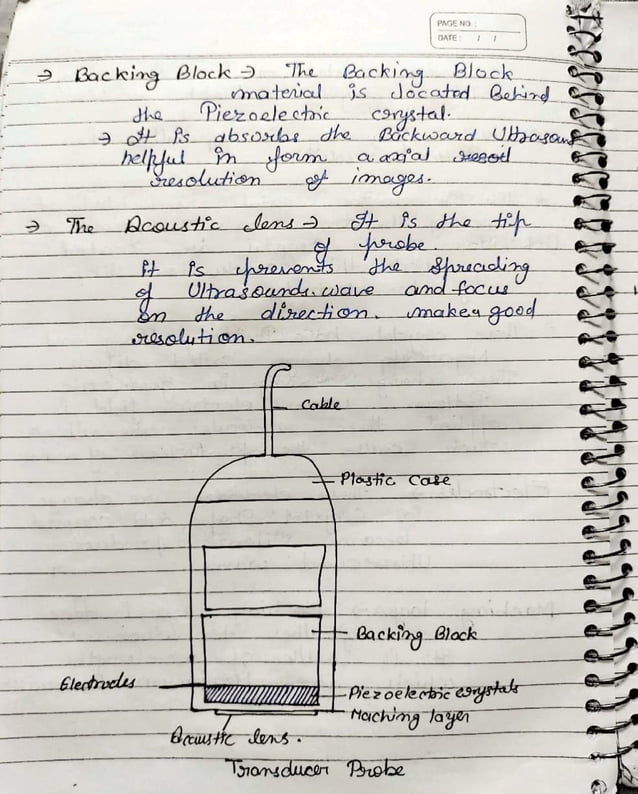 PAGE NO.:
DATE: / /
→ Backing Block → The Backing Block
material is located Behind
the Piezoelectric crystal.
→ It is absorbs the Backward Ultrasound
helpful in form a axial
resolution of images.
→ The Acoustic lens → It is the tip
of probe.
it is prevents the Spreading
of Ultrasounds wave and focus
on the direction. make a good
resolution.
Cable
Plastic Case
Backing Block
Electrodes
Piezoelectric crystals
Maching layer
Acoustic lens.
Transducer Probe